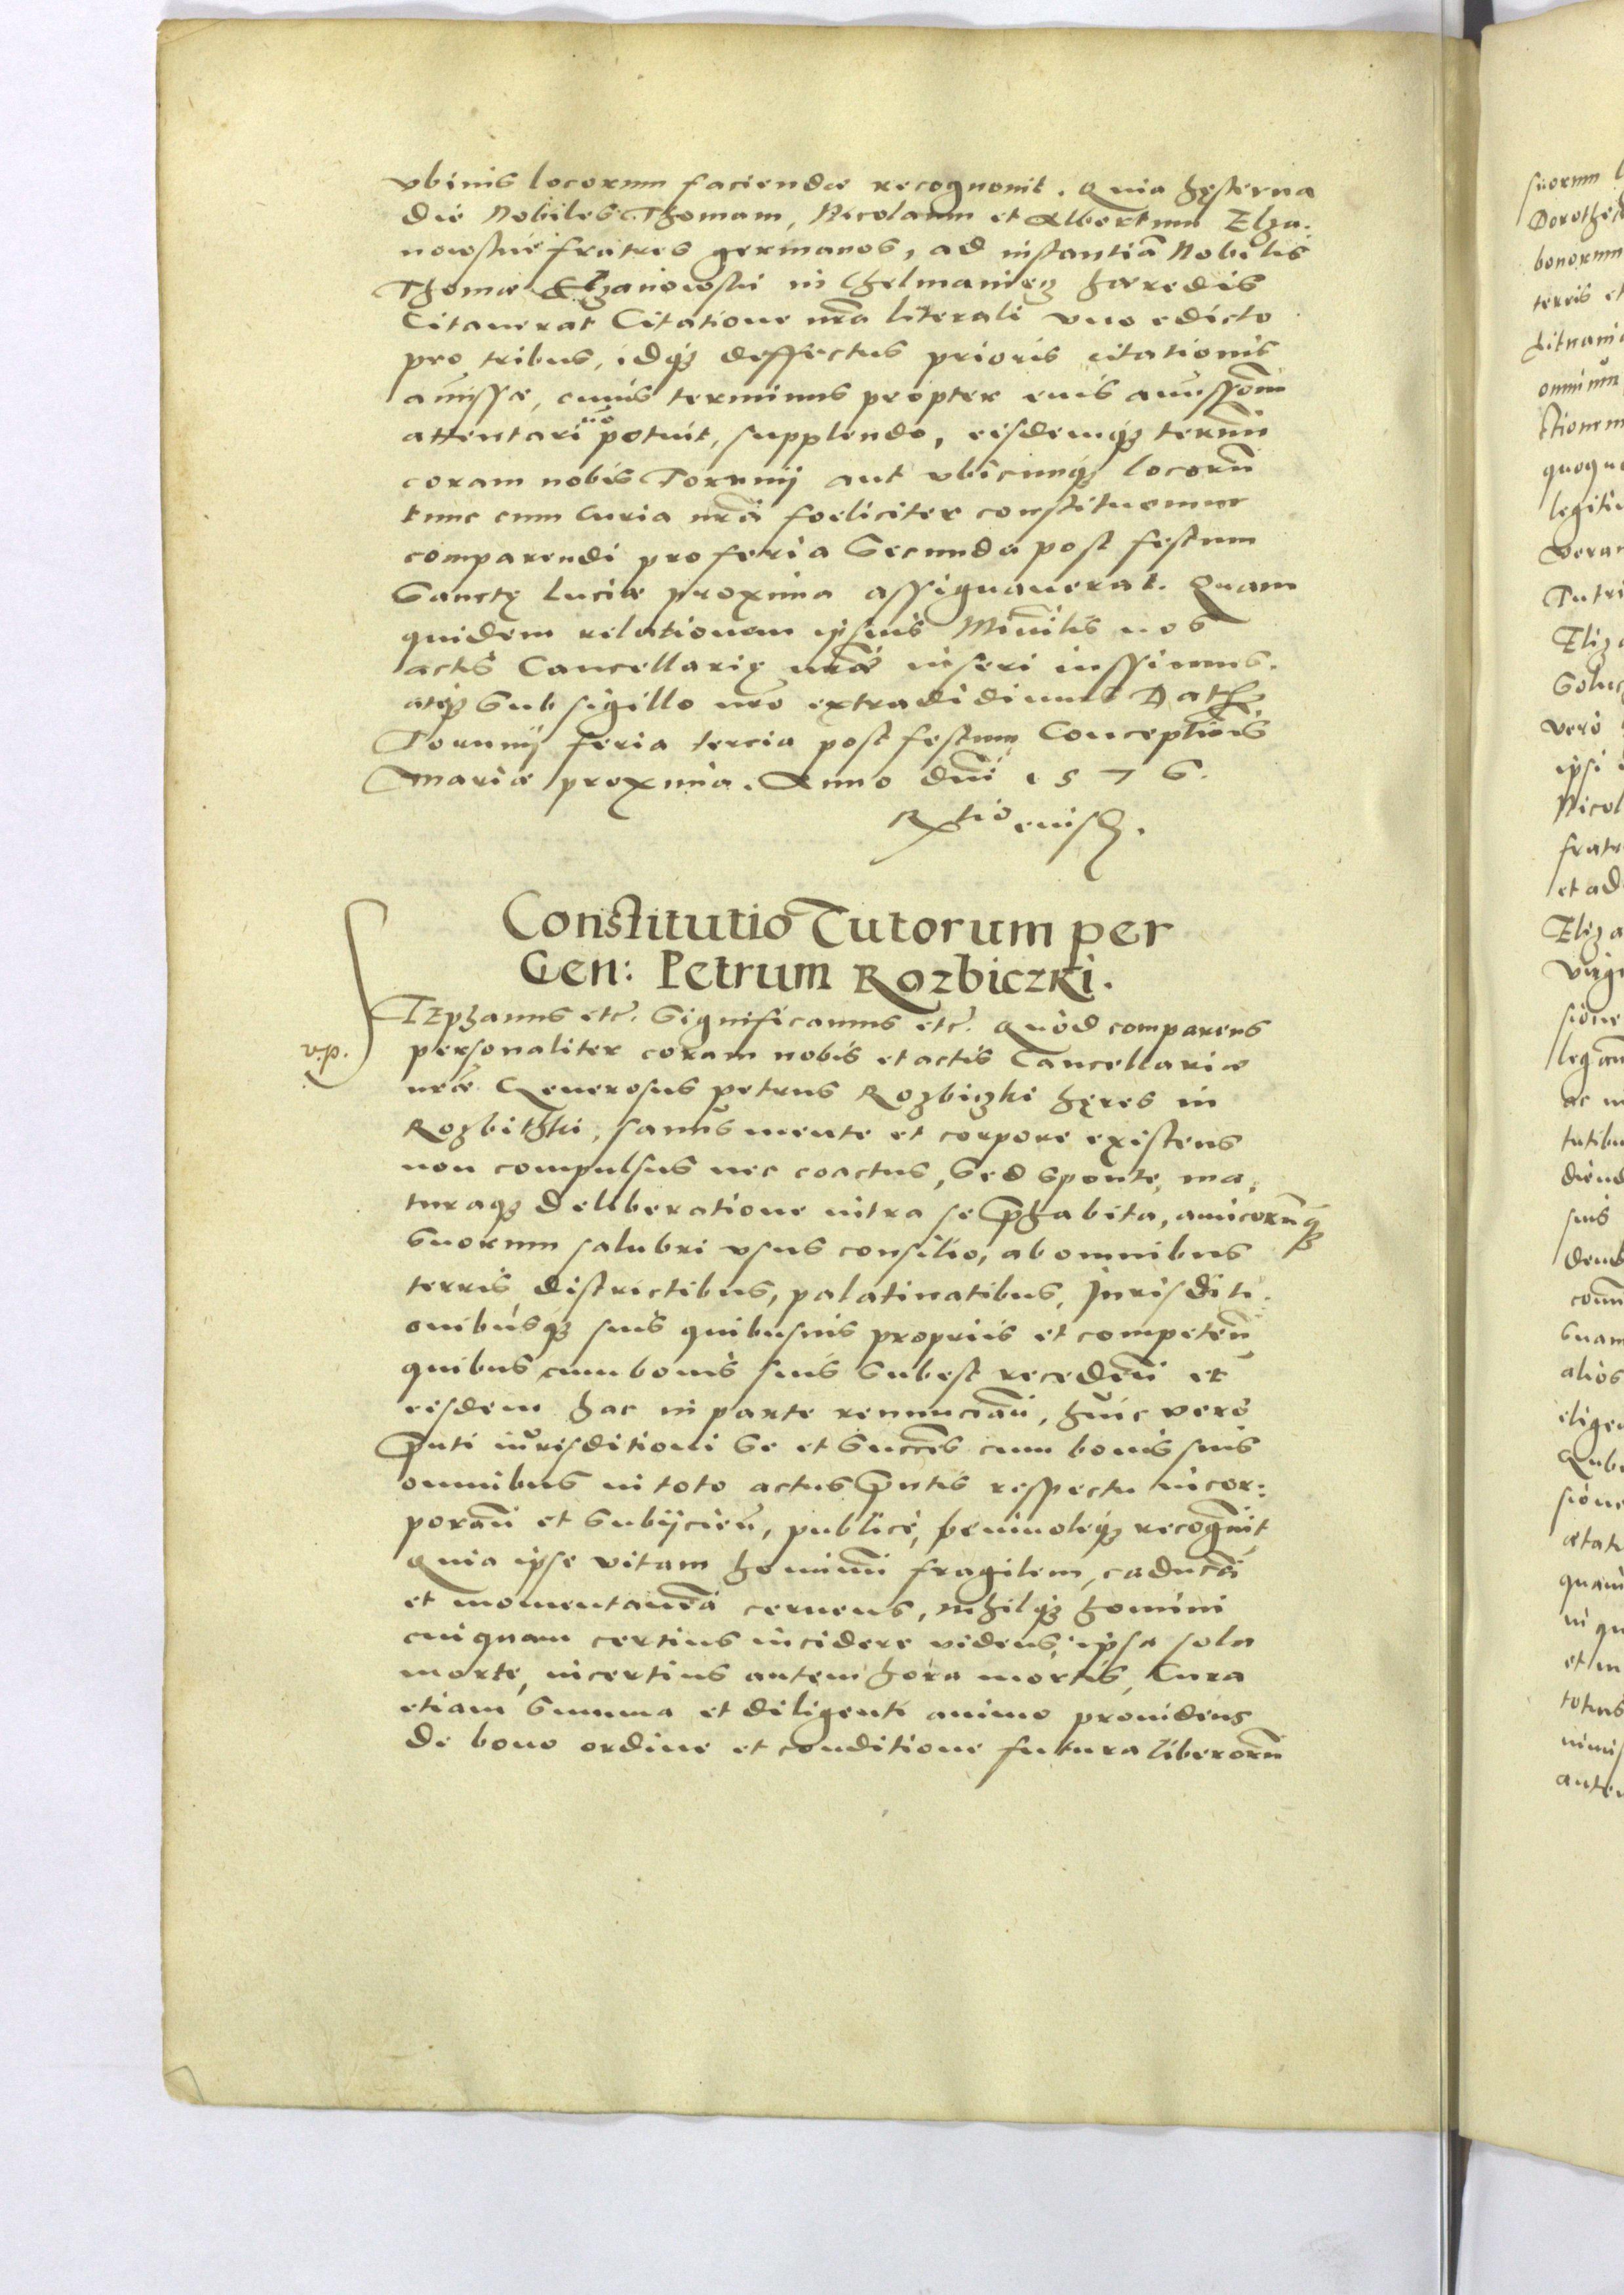 vbiuis locorum faciendae recognouit. Quia hęsterna
die Nobiles Thomam, Nicolaum et Albertum Elza-
nowskie fratres germanos, ad instantiã Nobilis
Thomae Elzanowski in Chelmaniez haeredis
Citauerat Citatione nrã literali vno edicto
pro tribus, idq₃ deffectus prioris citationis
amissae, cuius terminus propter eius amissoñi
attentari nõ potuit, supplendo, eisdemq₃ termiñ
coram nobis Torunij aut vbicunq₃ locorũ
tunc cum Curia nrã foeliciter constituemur
comparendi pro feria Secunda post festum
Sanctę Luciae proxima assignauerat. Quam
quidem relationem ipsius Minrilis nos
actis Cancellarię nrae inseri iussimus.
atq₃ Sub sigillo nro extradidimus Dat
Torunij feria tercia post festum Conceptiõis
Mariae proxima. Anno dñi 1576.
Rtio eiusd.
Constitutio Tutorum per
Gen: Petrum Rozbiczki.
v.p.
STephanus etc. Significamus etc. Quòd comparens
personaliter coram nobis et actis Cancellariae
nrae Generosus Petrus Rozbiczki hęres in
Rozbitzki, sanus mente et corpore existens
non compulsus nec coactus, Sed sponte, ma,
turaq₃ deliberatione intra se p̃habita, amicorũq₃
Suorum salubri vsus consilio, ab omnibus
terris districtibus, palatinatibus, Jurisditi-
onibusq₃ suis quibusuis propriis et competeñ
quibus cum bonis suis Subest recedeñ et
eisdem hac in parte renunciañ, huic verò
p̃nti iurisditioni Se et Succes cum bonis suis
omnibus in toto actus p̃ntis respectu incor:
porañ et Subijcieñ, publicè, beniuoleq₃ recognuit
Quia ipse vitam hominũ fragilem, caducã
et momentaneã cernens, nihilq₃ homini
cuiquam certius incidere videns, ipsa sola
morte, incertius autem hora mortis, Cura
etiam Summa et diligenti animo prouidens
de bono ordine et conditione futura liberorũ